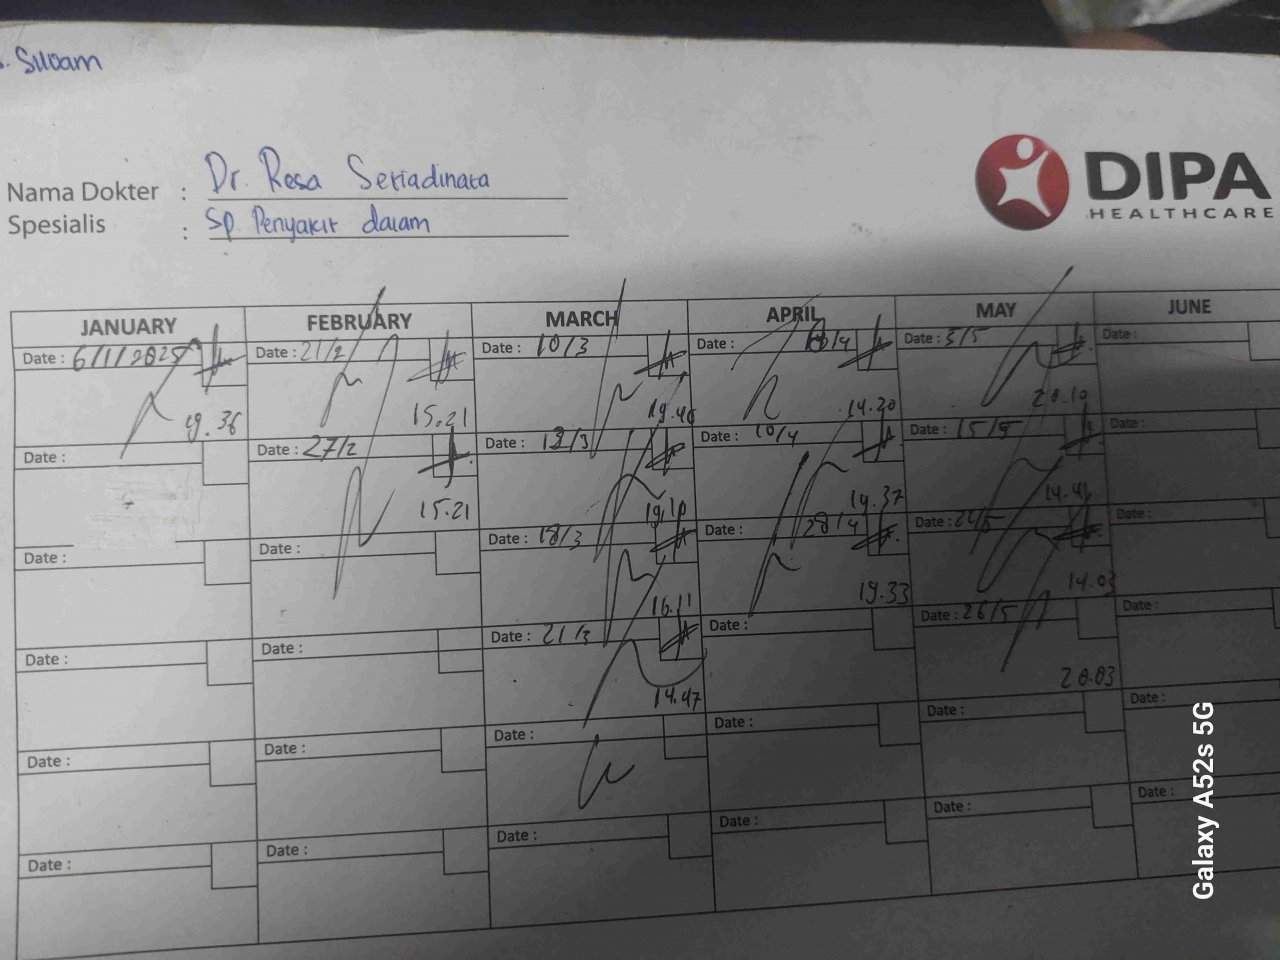 Siloam
DIPA
HEALTHCARE
Nama Dokter : Dr. Rosa Setiadinata
Spesialis : Sp. Penyakit dalam
JANUARY FEBRUARY MARCH APRIL MAY JUNE
Date : 6/1/2025 Date : 21/2 Date : 10/3 Date : /4 Date : 3/5 Date :
19.36 15.21 19.46 14.20 20.10
Date : Date : 27/2 Date : 13/3 Date : 10/4 Date : 15/5 Date :
15.21 19.10 14.37 14.41
Date : Date : Date : 18/3 Date : 28/4 Date : Date :
16.11 19.33 14.03
Date : Date : Date : 21/3 Date : Date : 26/5 Date :
14.47 20.03
Date : Date : Date : Date : Date : Date :
Date : Date : Date : Date : Date : Date :
Galaxy A52s 5G